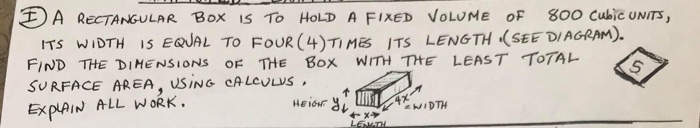 I) A RECTANGULAR BOX IS TO HOLD A FIXED VOLUME OF 800 CUBIC UNITS,
ITS WIDTH IS EQUAL TO FOUR (4) TIMES ITS LENGTH. (SEE DIAGRAM).
FIND THE DIMENSIONS OF THE BOX WITH THE LEAST TOTAL
5
SURFACE AREA, USING CALCULUS.
EXPLAIN ALL WORK.
HEIGHT y 4x = WIDTH
x
LENGTH